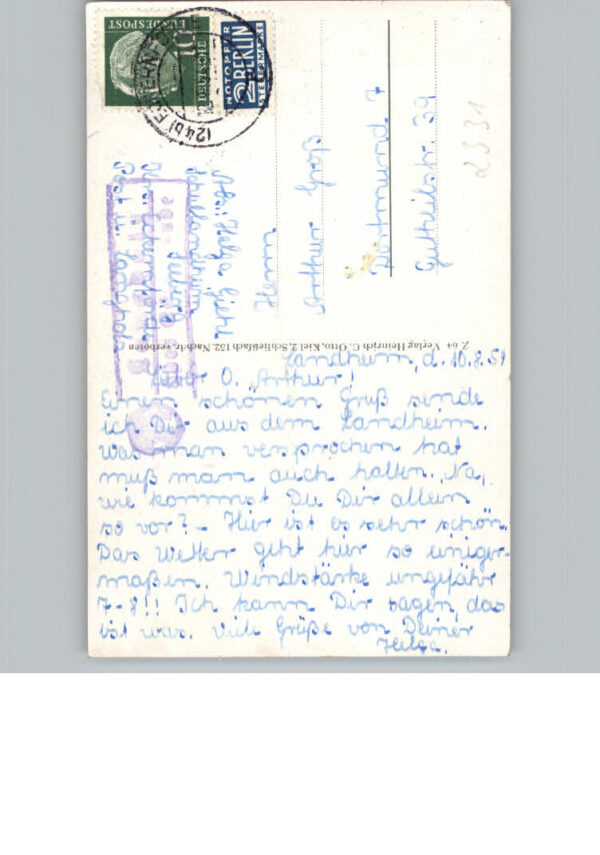 DEUTSCHE
BUNDESPOST
10
NOTOPFER
2 BERLIN
STEUERMARKE
(24b)
Abs: Helga
Schullandheim
Herrn
Arthur Groß
Dortmund 7
Gutheilstr. 39
2331
Z 64 Verlag Heinrich C. Otto, Kiel 2, Schließfach 152. Nachdr. verboten
Landheim, d. 10.8.54
Lieber O. Arthur!
Einen schönen Gruß sende
ich Dir aus dem Landheim.
Was man versprochen hat
muß man auch halten. Na,
wie kommst Du Dir allein
so vor? - Hier ist es sehr schön.
Das Wetter geht hier so einiger-
maßen. Windstärke ungefähr
7-8!! Ich kann Dir sagen, das
ist was. Viele Grüße von Deiner
Helga.